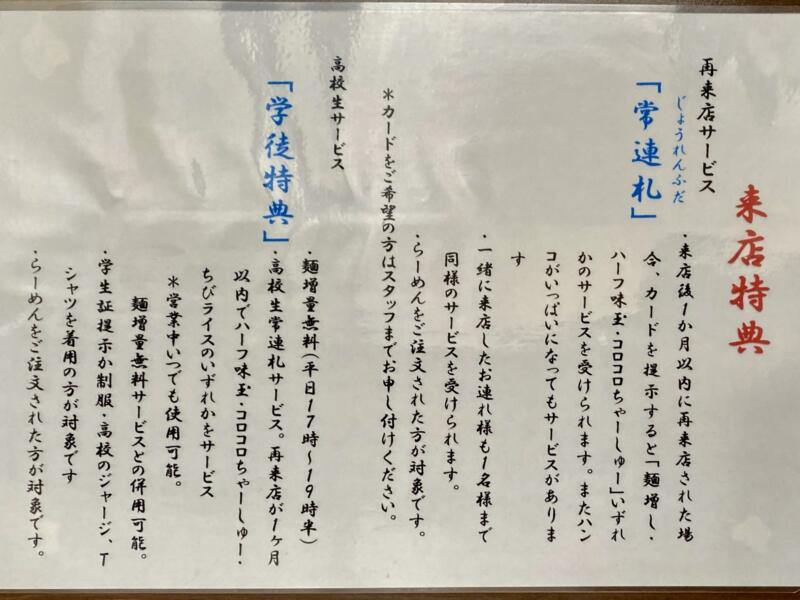 来店特典
再来店サービス
じょうれんふだ
「常連札」
・来店後1か月以内に再来店された場
合、カードを提示すると「麺増し・
ハーフ味玉・コロコロちゃーしゅー」いずれ
かのサービスを受けられます。またハン
コがいっぱいになってもサービスがありま
す
・一緒に来店したお連れ様も1名様まで
同様のサービスを受けられます。
・らーめんをご注文された方が対象です。
＊カードをご希望の方はスタッフまでお申し付けください。
高校生サービス
「学徒特典」
・麺増量無料(平日17時～19時半)
・高校生常連札サービス。再来店が1ヶ月
以内でハーフ味玉・コロコロちゃーしゅー・
ちびライスのいずれかをサービス
＊営業中いつでも使用可能。
麺増量無料サービスとの併用可能。
・学生証提示か制服・高校のジャージ、T
シャツを着用の方が対象です
・らーめんをご注文された方が対象です。